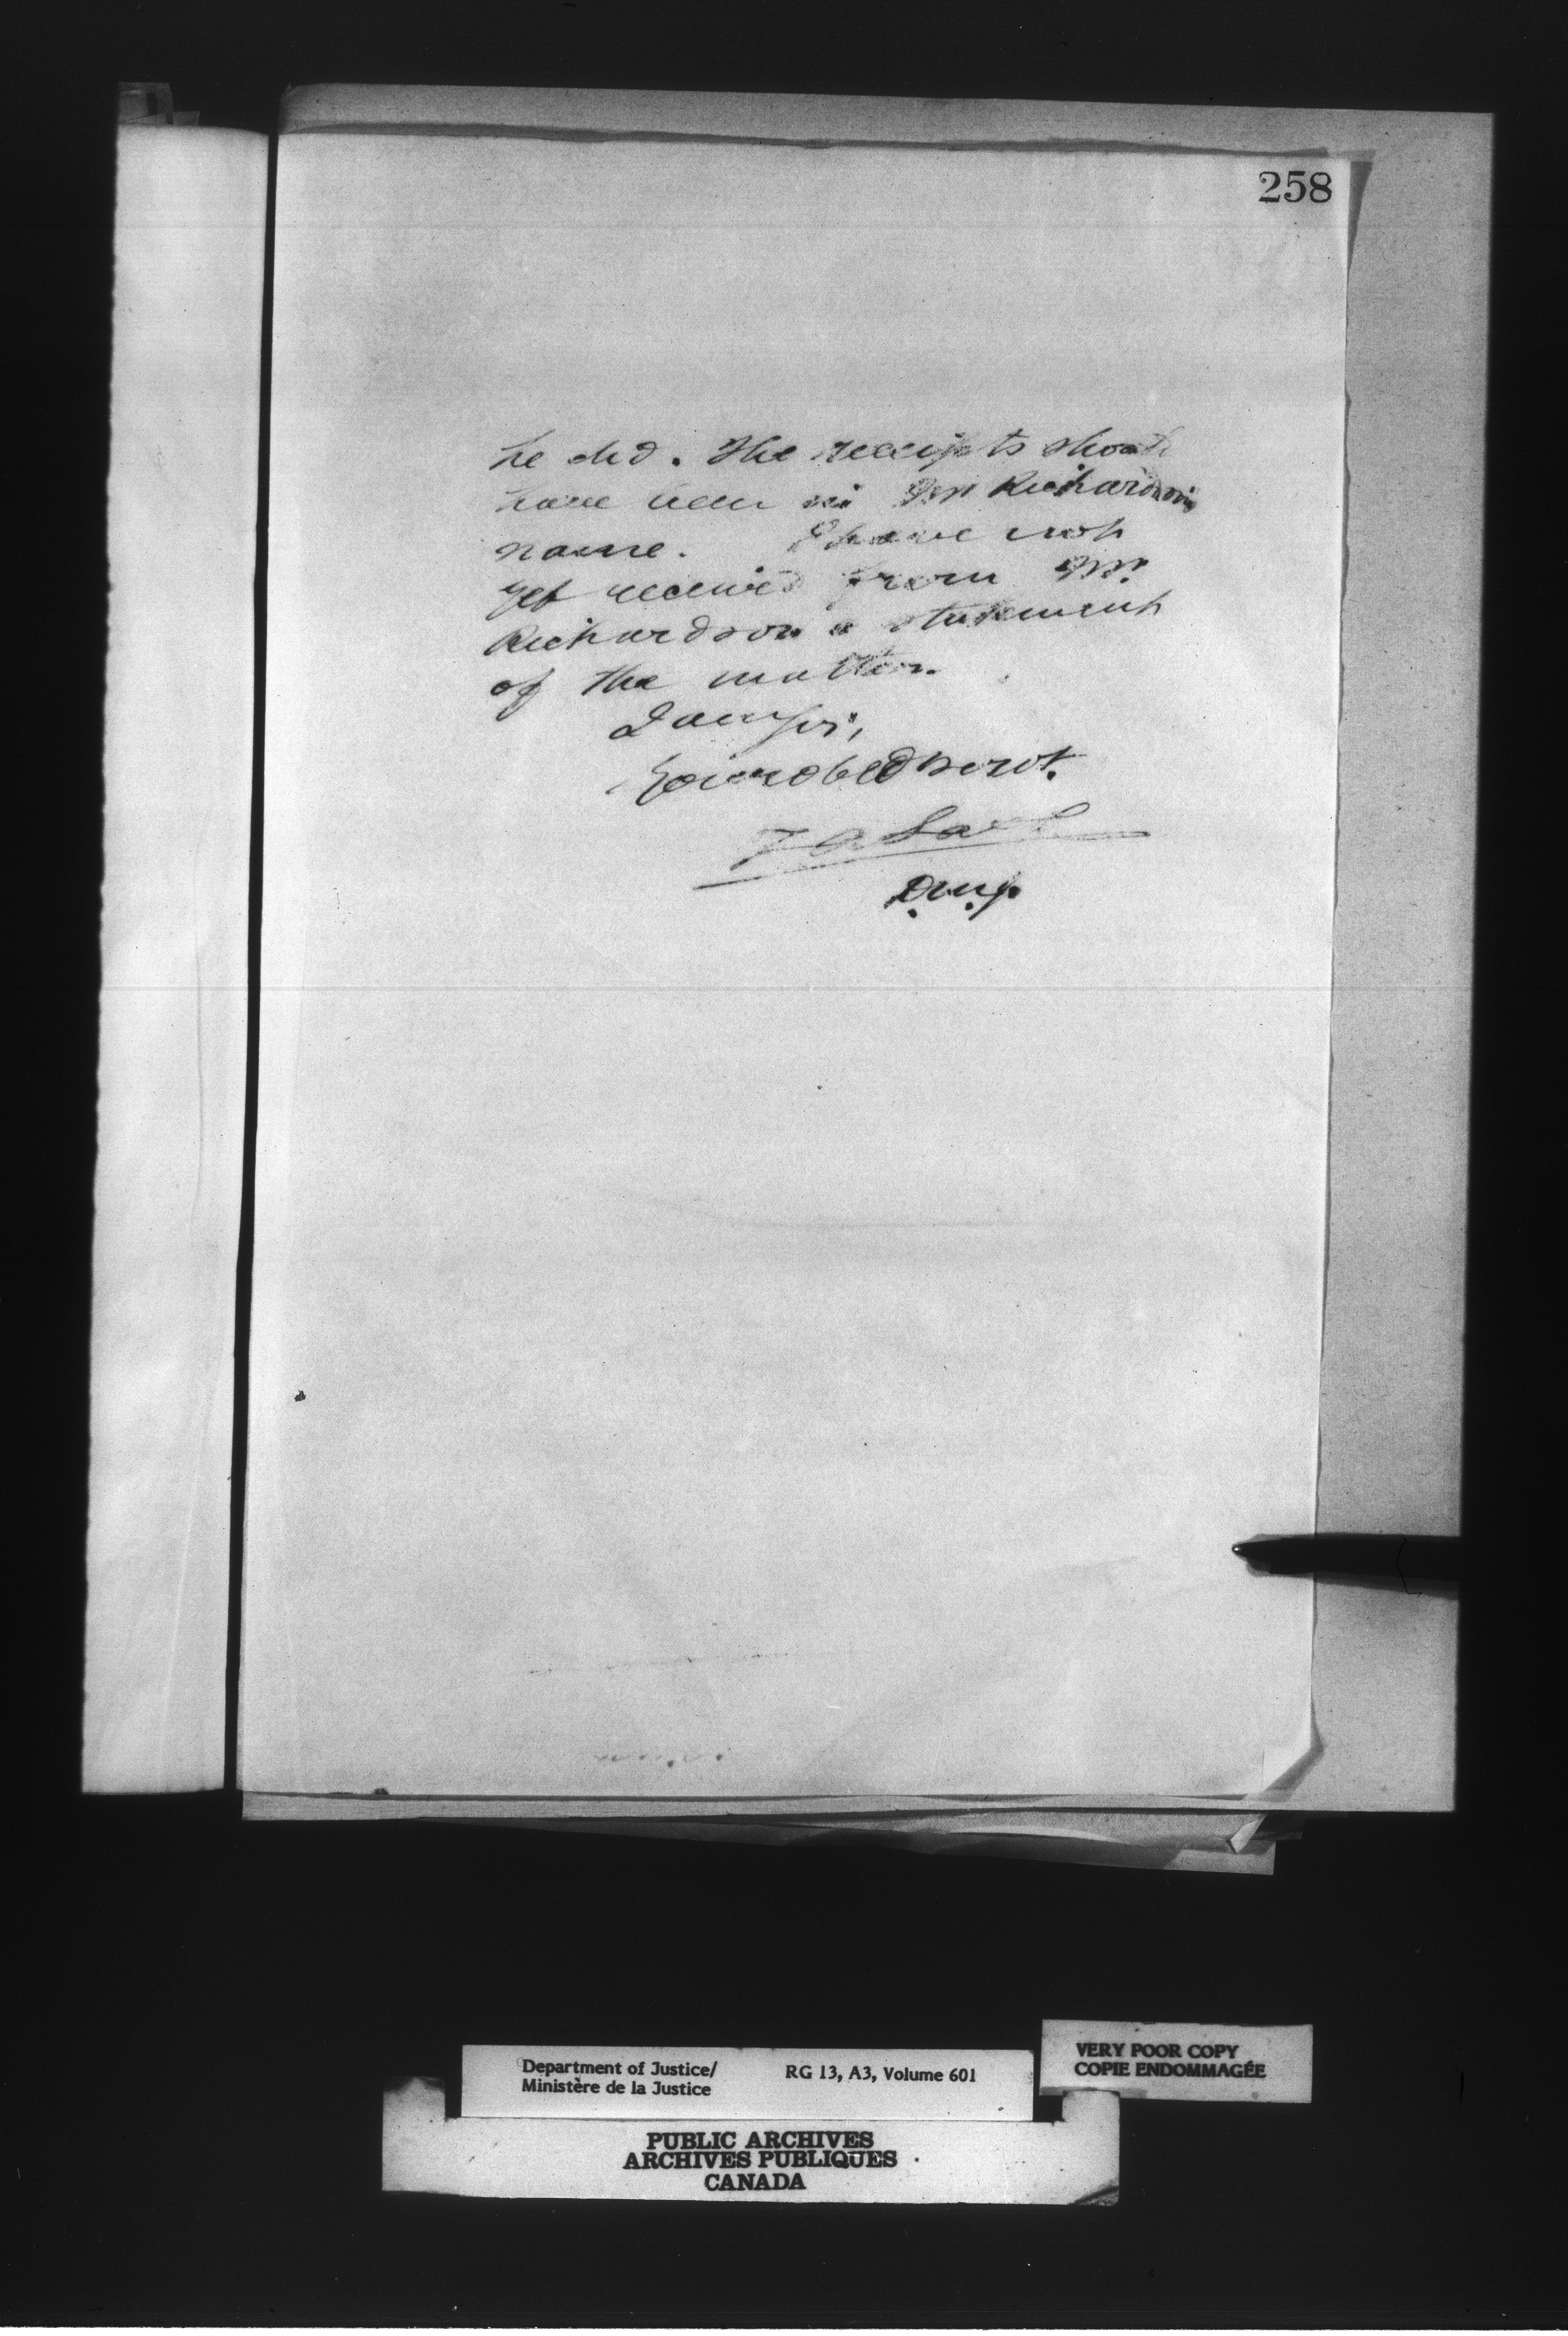 258
he did. The receipts should
have been in Mr Richardson's
name. I have not
yet received from Mr.
Richardson a statement
of the matter.
I am Sir,
Your obed servt.
D.M.J.
Department of Justice/
Ministère de la Justice
RG 13, A3, Volume 601
VERY POOR COPY
COPIE ENDOMMAGÉE
PUBLIC ARCHIVES
ARCHIVES PUBLIQUES
CANADA